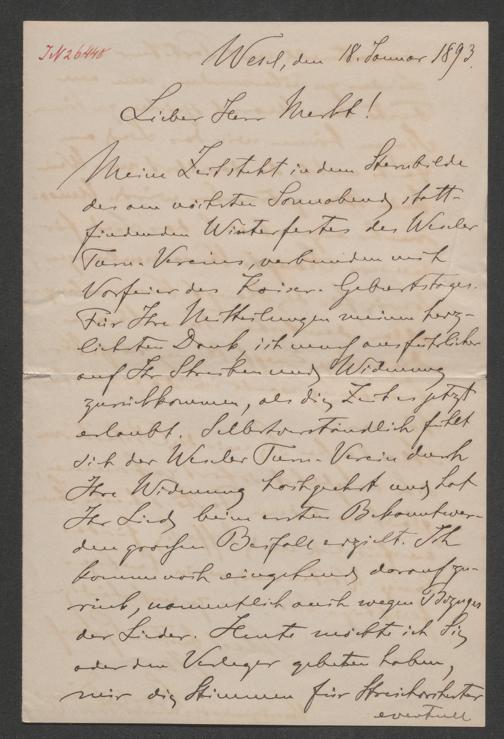 IN 26440
Wesel, den 18. Januar 1893.
Lieber Herr Merkt!
Meine Zeit steht in dem Sternbilde
des am nächsten Sonnabend statt-
findenden Winterfestes des Weseler
Turn-Vereins, verbunden mit
Vorfeier des Kaiser-Geburtstages.
Für Ihre Mittheilungen meinen herz-
lichsten Dank, ich muß ausführlicher
auf Ihr Schreiben und Widmung
zurückkommen, als die Zeit es jetzt
erlaubt. Selbstverständlich fühlt
sich der Weseler Turn-Verein durch
Ihre Widmung hochgeehrt und hat
Ihr Lied beim ersten Bekanntwer-
den großen Beifall erzielt. Ich
komme noch eingehend darauf zu-
rück, namentlich auch wegen Bezuges
der Lieder. Heute möchte ich Sie
oder den Verleger gebeten haben,
mir die Stimmen für Streichorchester
eventuell